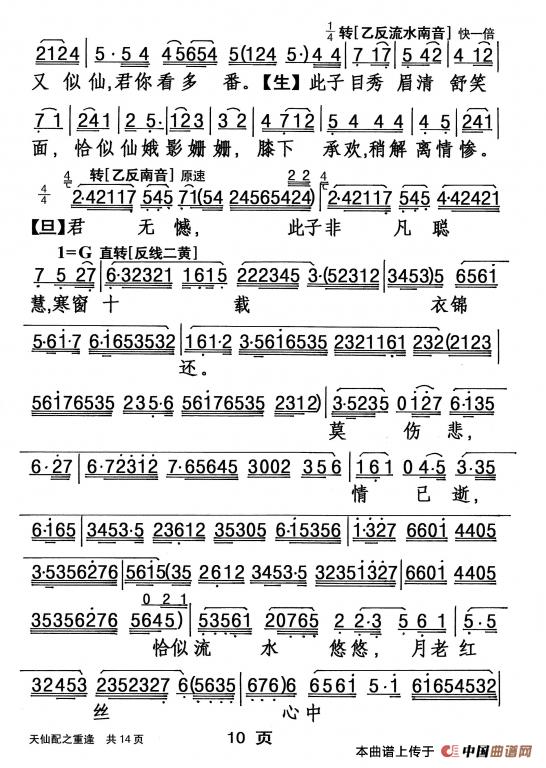 1/4 转[乙反流水南音] 快一倍
2124 5·54 45654 5(124 5·) 44 717 5 42 4 12
又 似仙,君你看多 番。【生】此子目秀 眉清 舒笑
71 241 2 5· 12·123 2 4712 5·45 4 5 241
面, 恰似仙娥影姗姗, 膝下 承欢,稍解离情惨。
转[乙反南音] 原速
4/4 2·42117 545 71(54 24565424) 2·42117 545 4·42421
【旦】君 无 憾, 此子非 凡 聪
1=G 直转[反线二黄]
7 5 27 6·32321 1615 222345 3·(52312 3453)5 6561
慧,寒窗 十 载 衣锦
5·61·7 6·1653532 161·2 3·5616535 2321161 232(2123
还。
56176535 235·6 56176535 56176535 2312) 3·5235 0127 6·135
莫 伤 悲,
6·27 6·72312 7·65645 3002 356 161 04·5 3·35
情 已 逝,
6·165 3453·5 23612 35305 6·15356 1·327 6601 4405
3·5356276 5615(35 2612 3453·5 32351327 6601 4405
0 2 1
35356276 5645) 53561 20765 2 2·3 5 6 1 5·
恰似流 水 悠悠, 月老红
32453 2352327 6(5635 676)6 6561 5 61654532
丝 心中
天仙配之重逢 共14页
10 页
本曲谱上传于 中国曲谱网